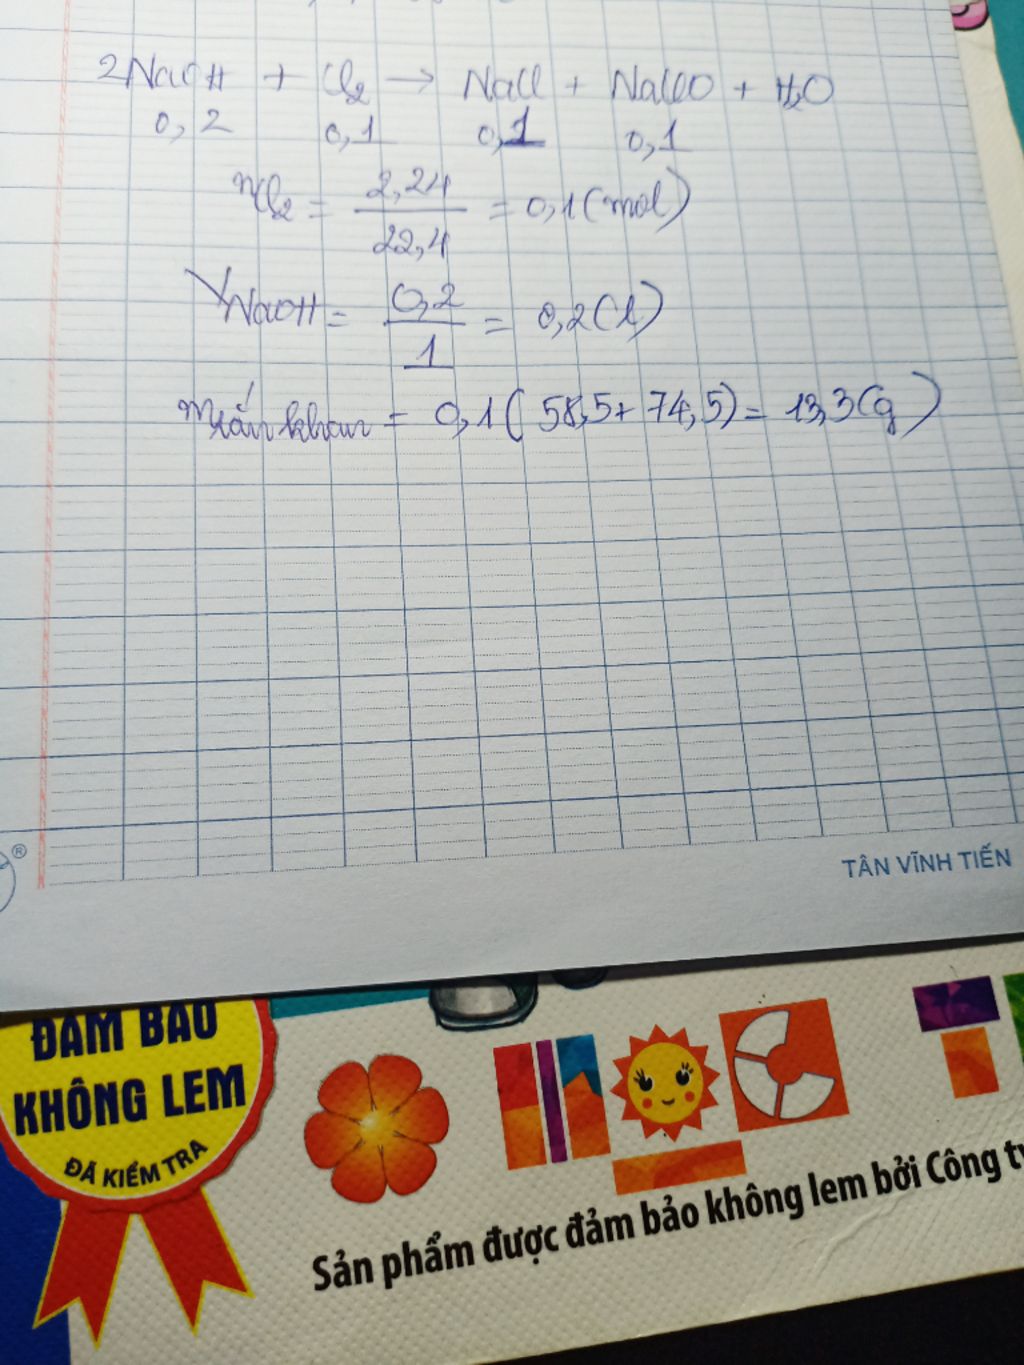 2NaOH + Cl₂ → NaCl + NaClO + H₂O
0,2 0,1 0,1 0,1
nCl₂ = 2,24 / 22,4 = 0,1 (mol)
VNaOH = 0,2 / 1 = 0,2 (l)
mrắn khan = 0,1 (58,5 + 74,5) = 13,3 (g)
®
TÂN VĨNH TIẾN
ĐẢM BẢO
KHÔNG LEM
ĐÃ KIỂM TRA
Sản phẩm được đảm bảo không lem bởi Công ty